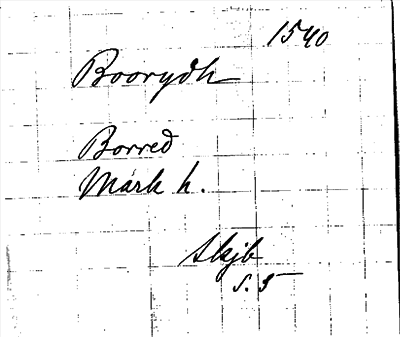 1540
Boorydh
Borred
Mark h.
Skjb
s. 5